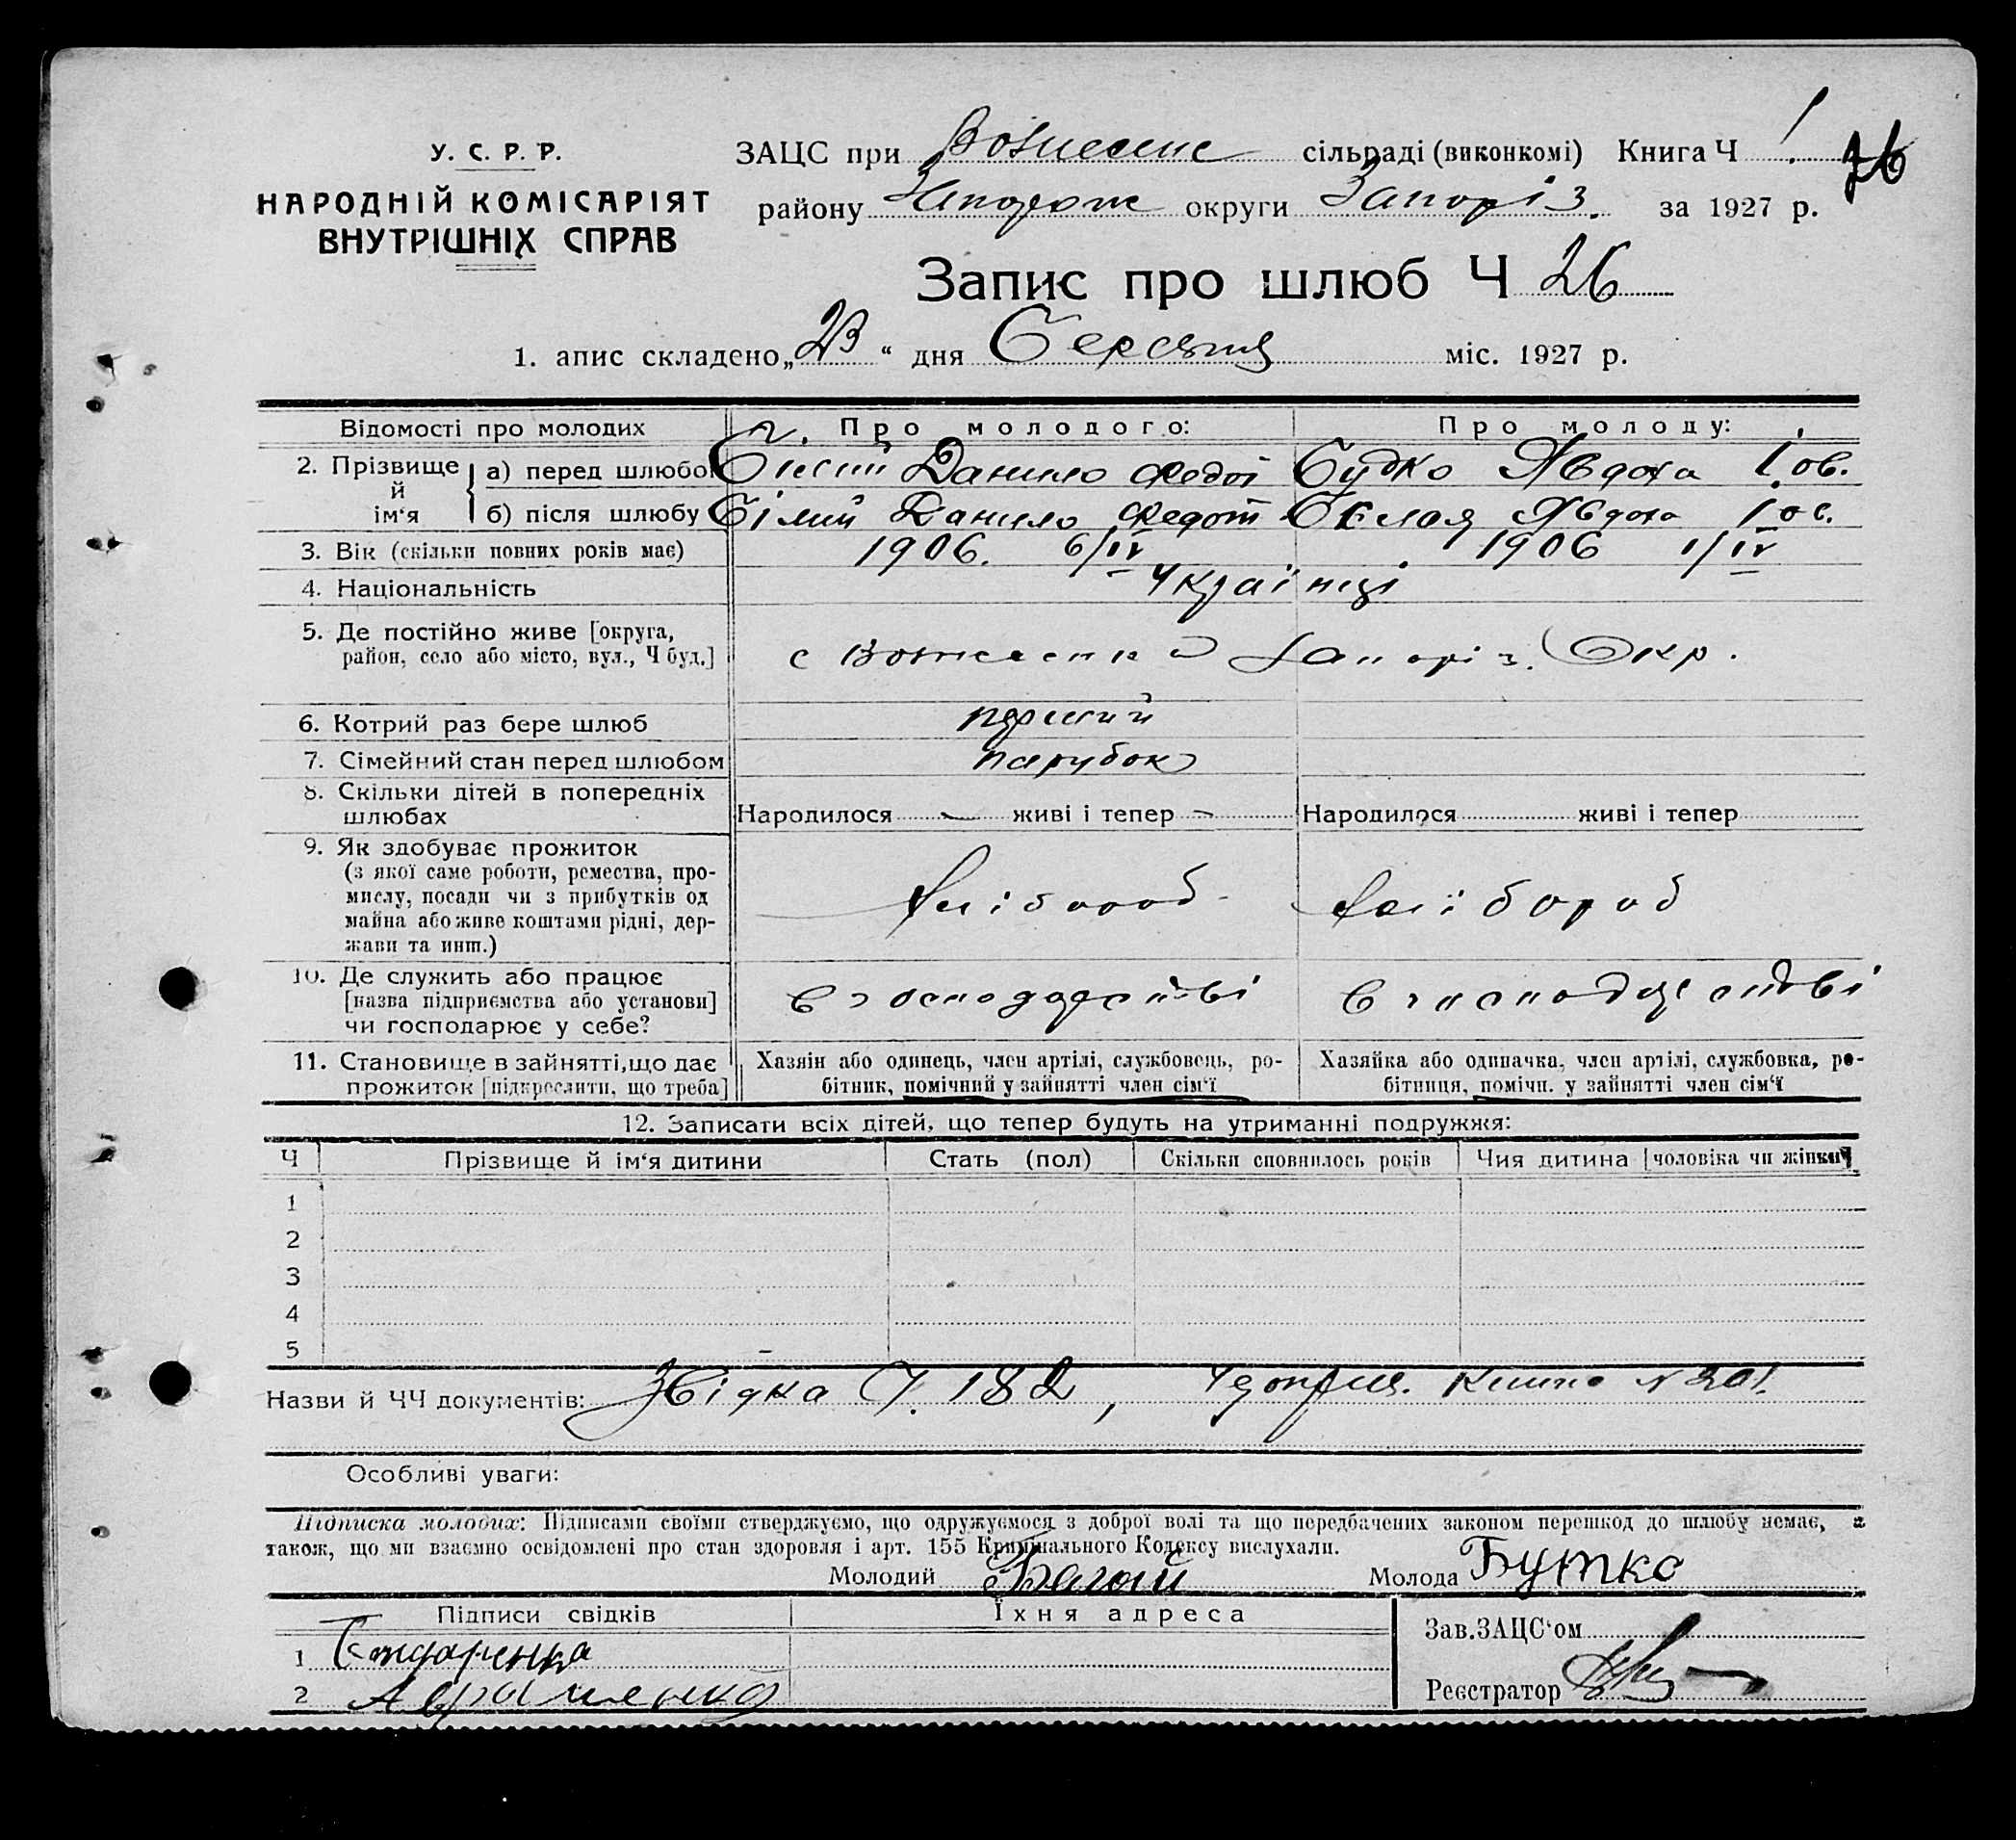 У. С. Р. Р.
НАРОДНІЙ КОМІСАРІЯТ
ВНУТРІШНІХ СПРАВ
ЗАЦС при Вознесенс сільраді (виконкомі) Книга Ч 1 26
району Запорож округи Запоріз. за 1927 р.
Запис про шлюб Ч 26
1. апис складено „23“ дня Серпня міс. 1927 р.
Відомості про молодих Про молодого: Про молоду:
2. Прізвище й ім‘я
а) перед шлюбом Білий Данило Федот Будко Явдоха Іов.
б) після шлюбу Білий Данило Федот Белая Явдоха Іов.
3. Вік (скільки повних років має) 1906. 6/IV 1906 1/IV
4. Національність Українці
5. Де постійно живе [округа,
район, село або місто, вул., Ч буд.] с Вознесенка Запоріз. Окр.
6. Котрий раз бере шлюб перший
7. Сімейний стан перед шлюбом парубок
8. Скільки дітей в попередніх
шлюбах Народилося — живі і тепер — Народилося живі і тепер
9. Як здобуває прожиток
(з якої саме роботи, ремества, про-
мислу, посади чи з прибутків од
майна або живе коштами рідні, дер-
жави та инш.)
хлібороб хлібороб
10. Де служить або працює
[назва підприємства або установи]
чи господарює у себе?
в господарстві в господарстві
11. Становище в зайнятті, що дає
прожиток [підкреслити, що треба]
Хазяїн або одинець, член артілі, службовець, ро-
бітник, помічний у зайнятті член сім‘ї
Хазяйка або одиначка, член артілі, службовка, ро-
бітниця, помічн. у зайнятті член сім‘ї
12. Записати всіх дітей, що тепер будуть на утриманні подружжя:
Ч Прізвище й ім‘я дитини Стать (пол) Скільки сповнилось років Чия дитина [чоловіка чи жінки]
1
2
3
4
5
Назви й ЧЧ документів: Звідка Ч. 182, № 201.
Особливі уваги:
Підписка молодих: Підписами своїми стверджуємо, що одружуємося з доброї волі та що передбачених законом перешкод до шлюбу немає, а
також, що ми взаємно освідомлені про стан здоровля і арт. 155 Кримінального Кодексу вислухали.
Молодий Молода Бутко
Підписи свідків Їхня адреса
Зав. ЗАЦС‘ом
1
2 Авраменко
Реєстратор